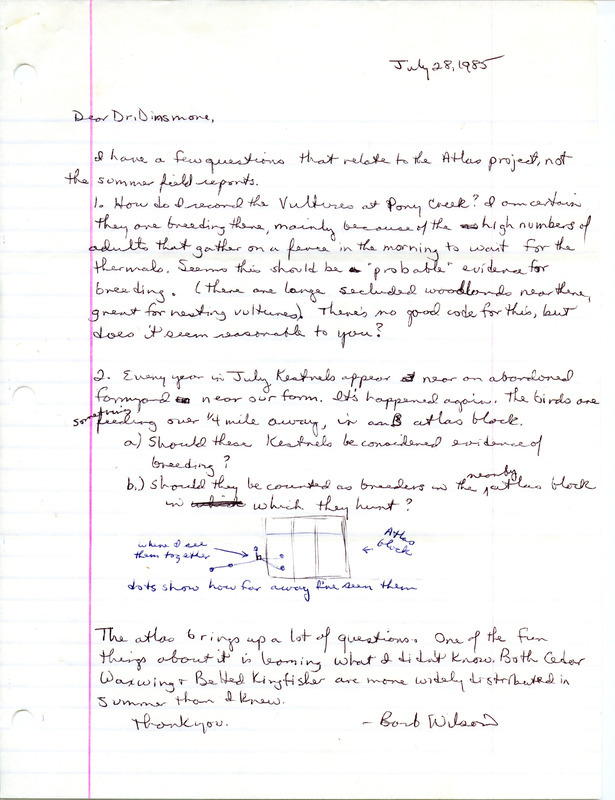 July 28, 1985
Dear Dr. Dinsmore,
I have a few questions that relate to the Atlas project, not
the summer field reports.
1. How do I record the Vultures at Pony Creek? I am certain
they are breeding there, mainly because of the high numbers of
adults that gather on a fence in the morning to wait for the
thermals. Seems this should be "probable" evidence for
breeding. (there are large secluded woodlands near there,
great for nesting vultures). There's no good code for this, but
does it seem reasonable to you?
2. Every year in July Kestrels appear near an abandoned
farmyard near our farm. It's happened again. The birds are
something
feeding over 1/4 mile away, in an atlas block.
a) Should these Kestrels be considered evidence of
breeding?
b.) Should they be counted as breeders in the nearby atlas block
in which they hunt?
where I see
them together
Atlas
block
dots show how far away I've seen them
The atlas brings up a lot of questions. One of the fun
things about it is learning what I didn't know. Both Cedar
Waxwing + Belted Kingfisher are more widely distributed in
summer than I knew.
Thank you.
- Barb Wilson